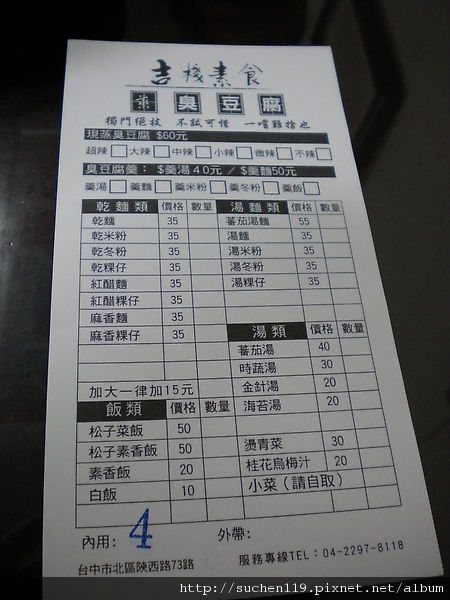 吉棧素食
素 臭豆腐
獨門絕技 不試可惜 一嚐難捨也
現蒸臭豆腐 $60元
超辣 大辣 中辣 小辣 微辣 不辣
臭豆腐羹: $羹湯40元/$羹麵50元
羹湯 羹麵 羹米粉 羹冬粉 羹飯
乾麵類 價格 數量
乾麵 35
乾米粉 35
乾冬粉 35
乾粿仔 35
紅醋麵 35
紅醋粿仔 35
麻香麵 35
麻香粿仔 35
加大一律加15元
飯類 價格 數量
松子菜飯 50
松子素香飯 50
素香飯 20
白飯 10
湯麵類 價格 數量
蕃茄湯麵 55
湯麵 35
湯米粉 35
湯冬粉 35
湯粿仔 35
湯類 價格 數量
蕃茄湯 40
時蔬湯 30
金針湯 20
海苔湯 20
燙青菜 30
桂花烏梅汁 20
小菜(請自取)
內用: 4 外帶:
台中市北區陝西路73路
服務專線TEL:04-2297-8118
http://suchen119.pixnet.net/album